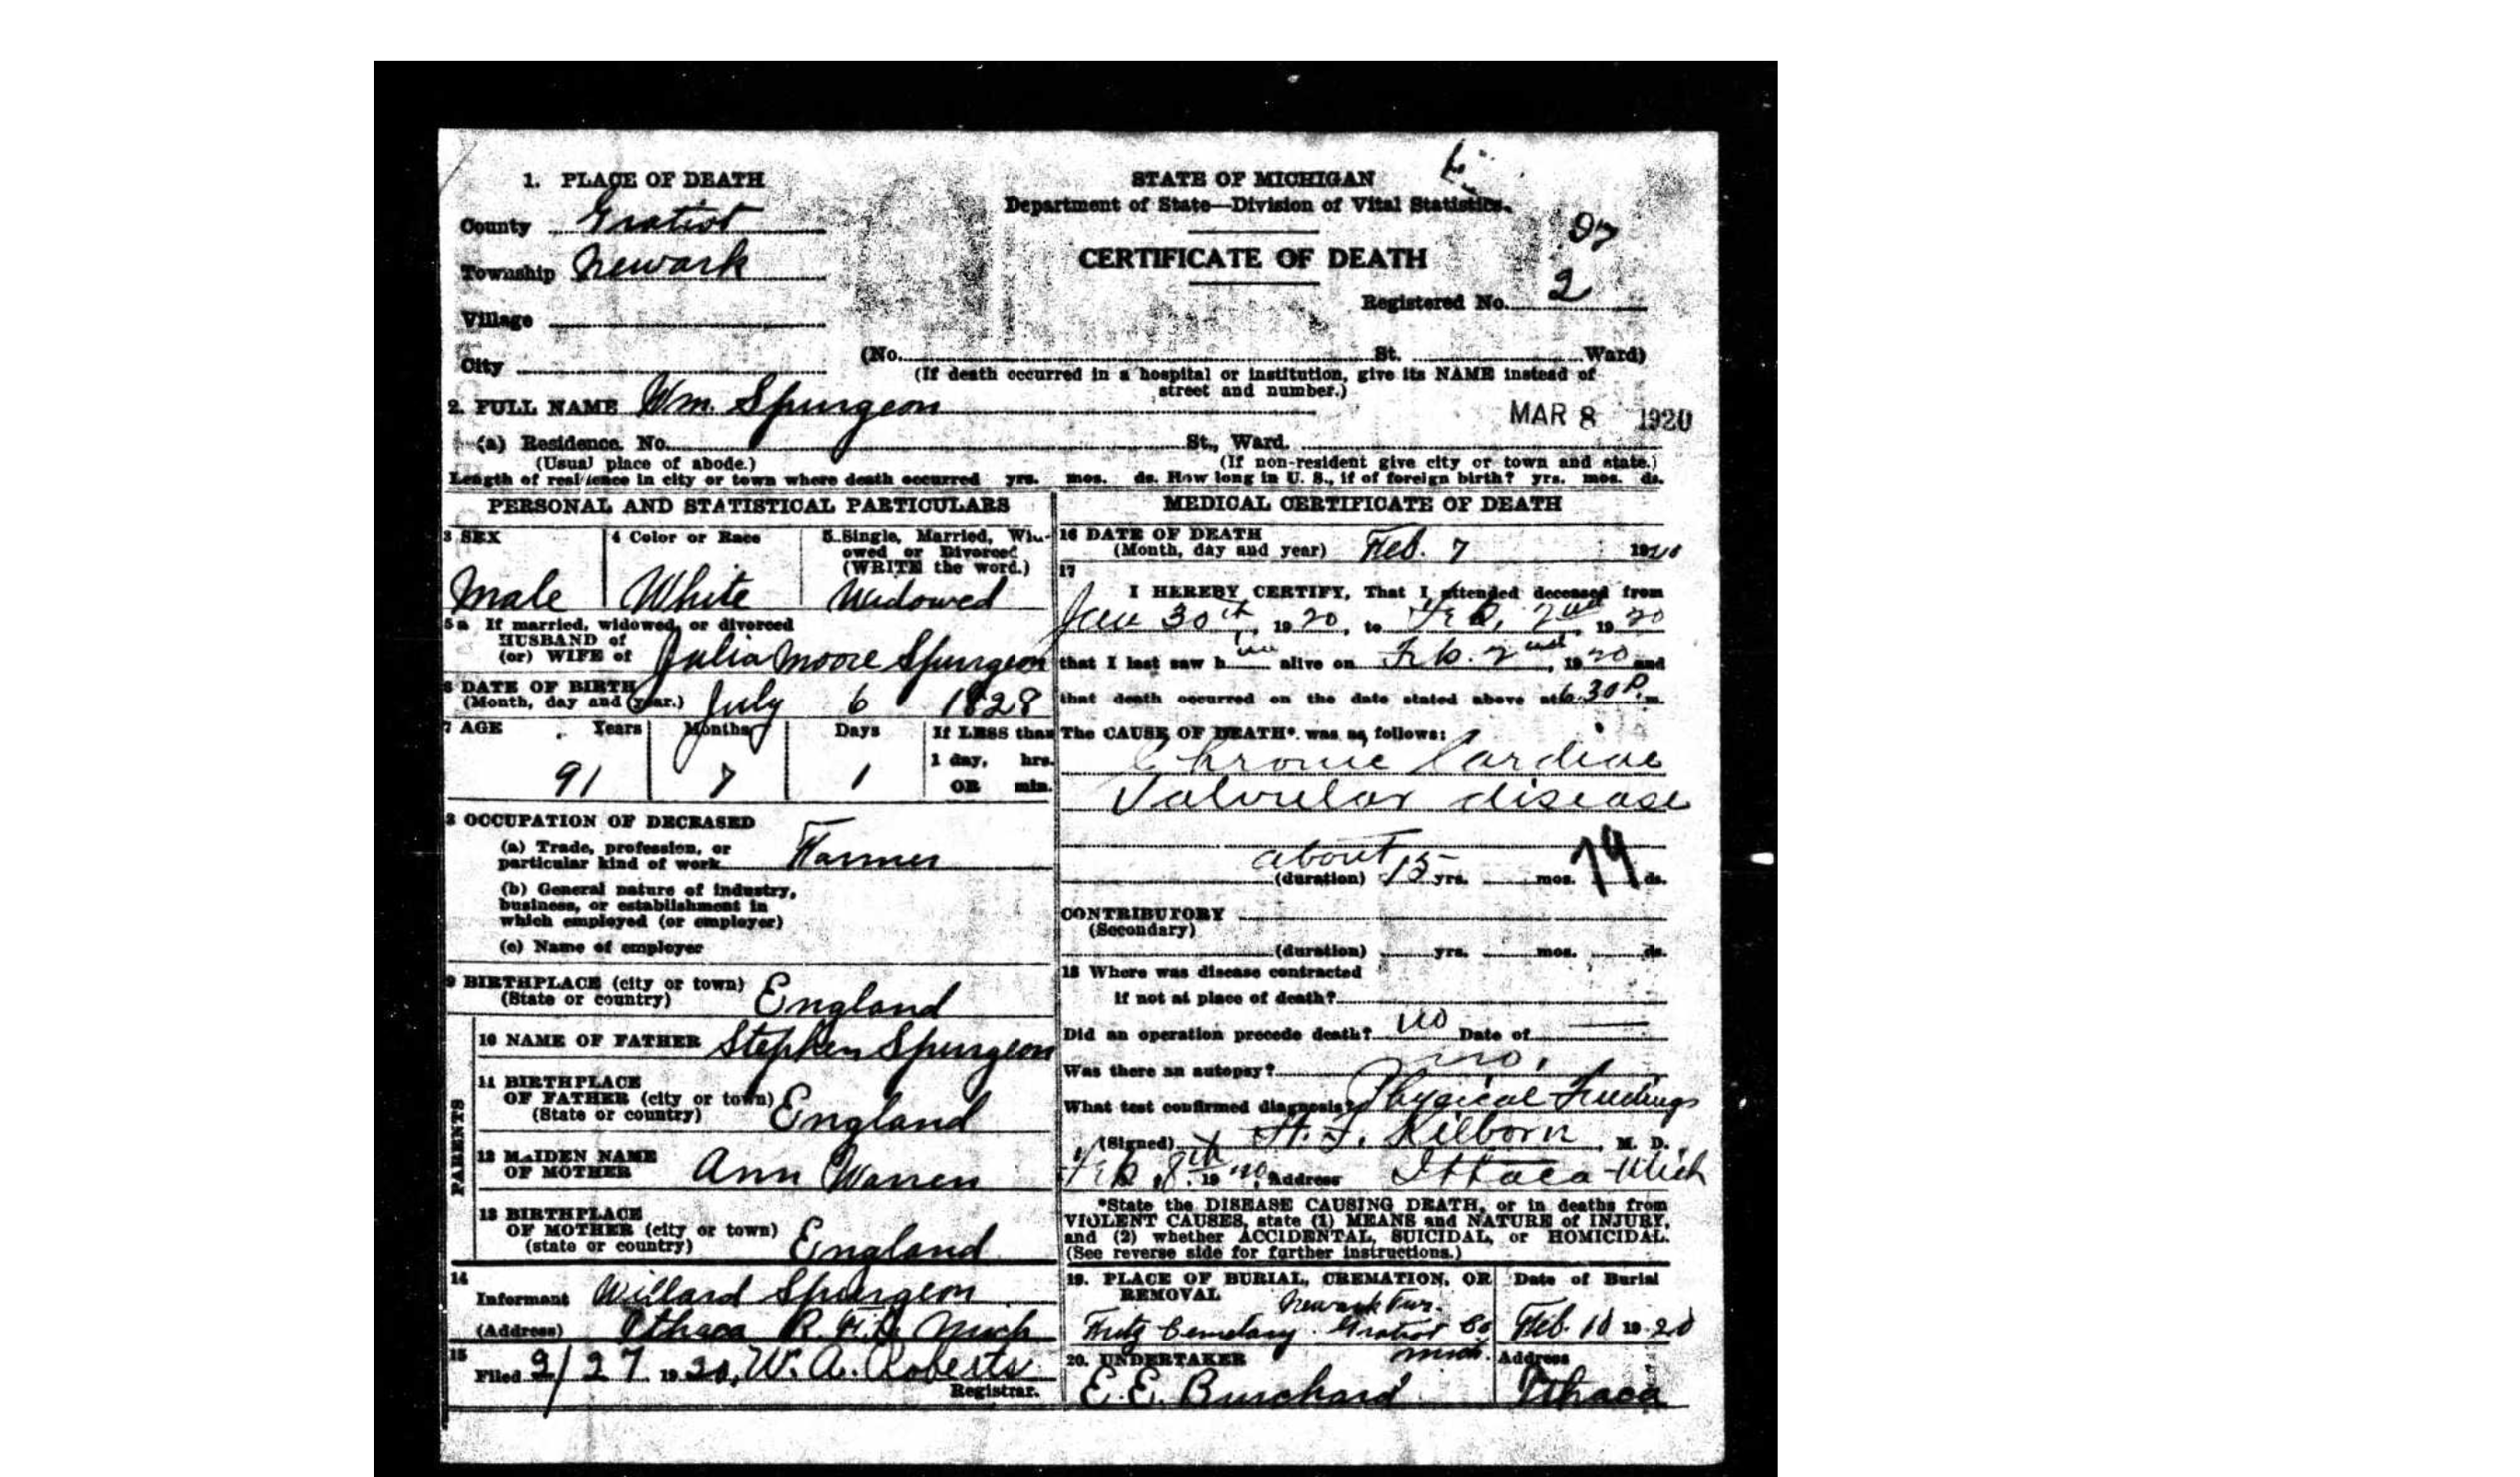 1. PLACE OF DEATH
County Gratiot
Township Newark
Village
City
STATE OF MICHIGAN
Department of State—Division of Vital Statistics.
CERTIFICATE OF DEATH
97
Registered No. 2
(No. St. Ward)
(If death occurred in a hospital or institution, give its NAME instead of
street and number.)
2. FULL NAME Wm. Spurgeon
MAR 8 1920
(a) Residence. No. St., Ward.
(Usual place of abode.) (If non-resident give city or town and state.)
Length of residence in city or town where death occurred yrs. mos. ds. How long in U. S., if of foreign birth? yrs. mos. ds.
PERSONAL AND STATISTICAL PARTICULARS
3 SEX 4 Color or Race 5 Single, Married, Wid-
owed or Divorced
(WRITE the word.)
Male White Widowed
5a If married, widowed, or divorced
HUSBAND of
(or) WIFE of Julia Moore Spurgeon
6 DATE OF BIRTH
(Month, day and year.) July 6 1828
7 AGE Years Months Days If LESS than
1 day, hrs.
OR min.
91 7 1
8 OCCUPATION OF DECEASED
(a) Trade, profession, or
particular kind of work Farmer
(b) General nature of industry,
business, or establishment in
which employed (or employer)
(c) Name of employer
9 BIRTHPLACE (city or town)
(State or country) England
PARENTS
10 NAME OF FATHER Stephen Spurgeon
11 BIRTHPLACE
OF FATHER (city or town)
(State or country) England
12 MAIDEN NAME
OF MOTHER Ann Warren
13 BIRTHPLACE
OF MOTHER (city or town)
(state or country) England
14
Informant Willard Spurgeon
(Address) Ithaca R.F.D. Mich
15
Filed 2/27 1920, W. A. Roberts
Registrar.
MEDICAL CERTIFICATE OF DEATH
16 DATE OF DEATH
(Month, day and year) Feb. 7 1920
17
I HEREBY CERTIFY, That I attended deceased from
Jan 30th, 1920, to Feb. 2nd, 1920
that I last saw him alive on Feb. 2nd, 1920 and
that death occurred on the date stated above at 6.30 P. m.
The CAUSE OF DEATH* was as follows:
Chronic Cardiac
Valvular disease
79
about
(duration) 15 yrs. mos. ds.
CONTRIBUTORY
(Secondary)
(duration) yrs. mos. ds.
18 Where was disease contracted
if not at place of death?
Did an operation precede death? no Date of
Was there an autopsy? no.
What test confirmed diagnosis? Physical Findings
(Signed) H. F. Kilborn, M. D.
Feb. 8th 1920, Address Ithaca Mich
*State the DISEASE CAUSING DEATH, or in deaths from
VIOLENT CAUSES, state (1) MEANS and NATURE of INJURY,
and (2) whether ACCIDENTAL, SUICIDAL, or HOMICIDAL.
(See reverse side for further instructions.)
19. PLACE OF BURIAL, CREMATION, OR
REMOVAL
Newark Twp.
Cemetary Gratiot Co
Mich.
Date of Burial
Feb. 10 1920
20. UNDERTAKER
E. E. Burchard
Address
Ithaca